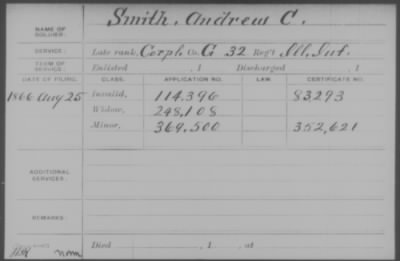 NAME OF SOLDIER: Smith, Andrew C.
SERVICE: Late rank, Corpl. Co. G 32 Reg't Ill. Inf.
TERM OF SERVICE: Enlisted , 1 Discharged , 1
DATE OF FILING. CLASS. APPLICATION NO. LAW. CERTIFICATE NO.
1866 Aug 25 Invalid, 114,396 83293
Widow, 248,108
Minor, 369,500 352,621
ADDITIONAL SERVICES:
REMARKS:
Died , 1 , at